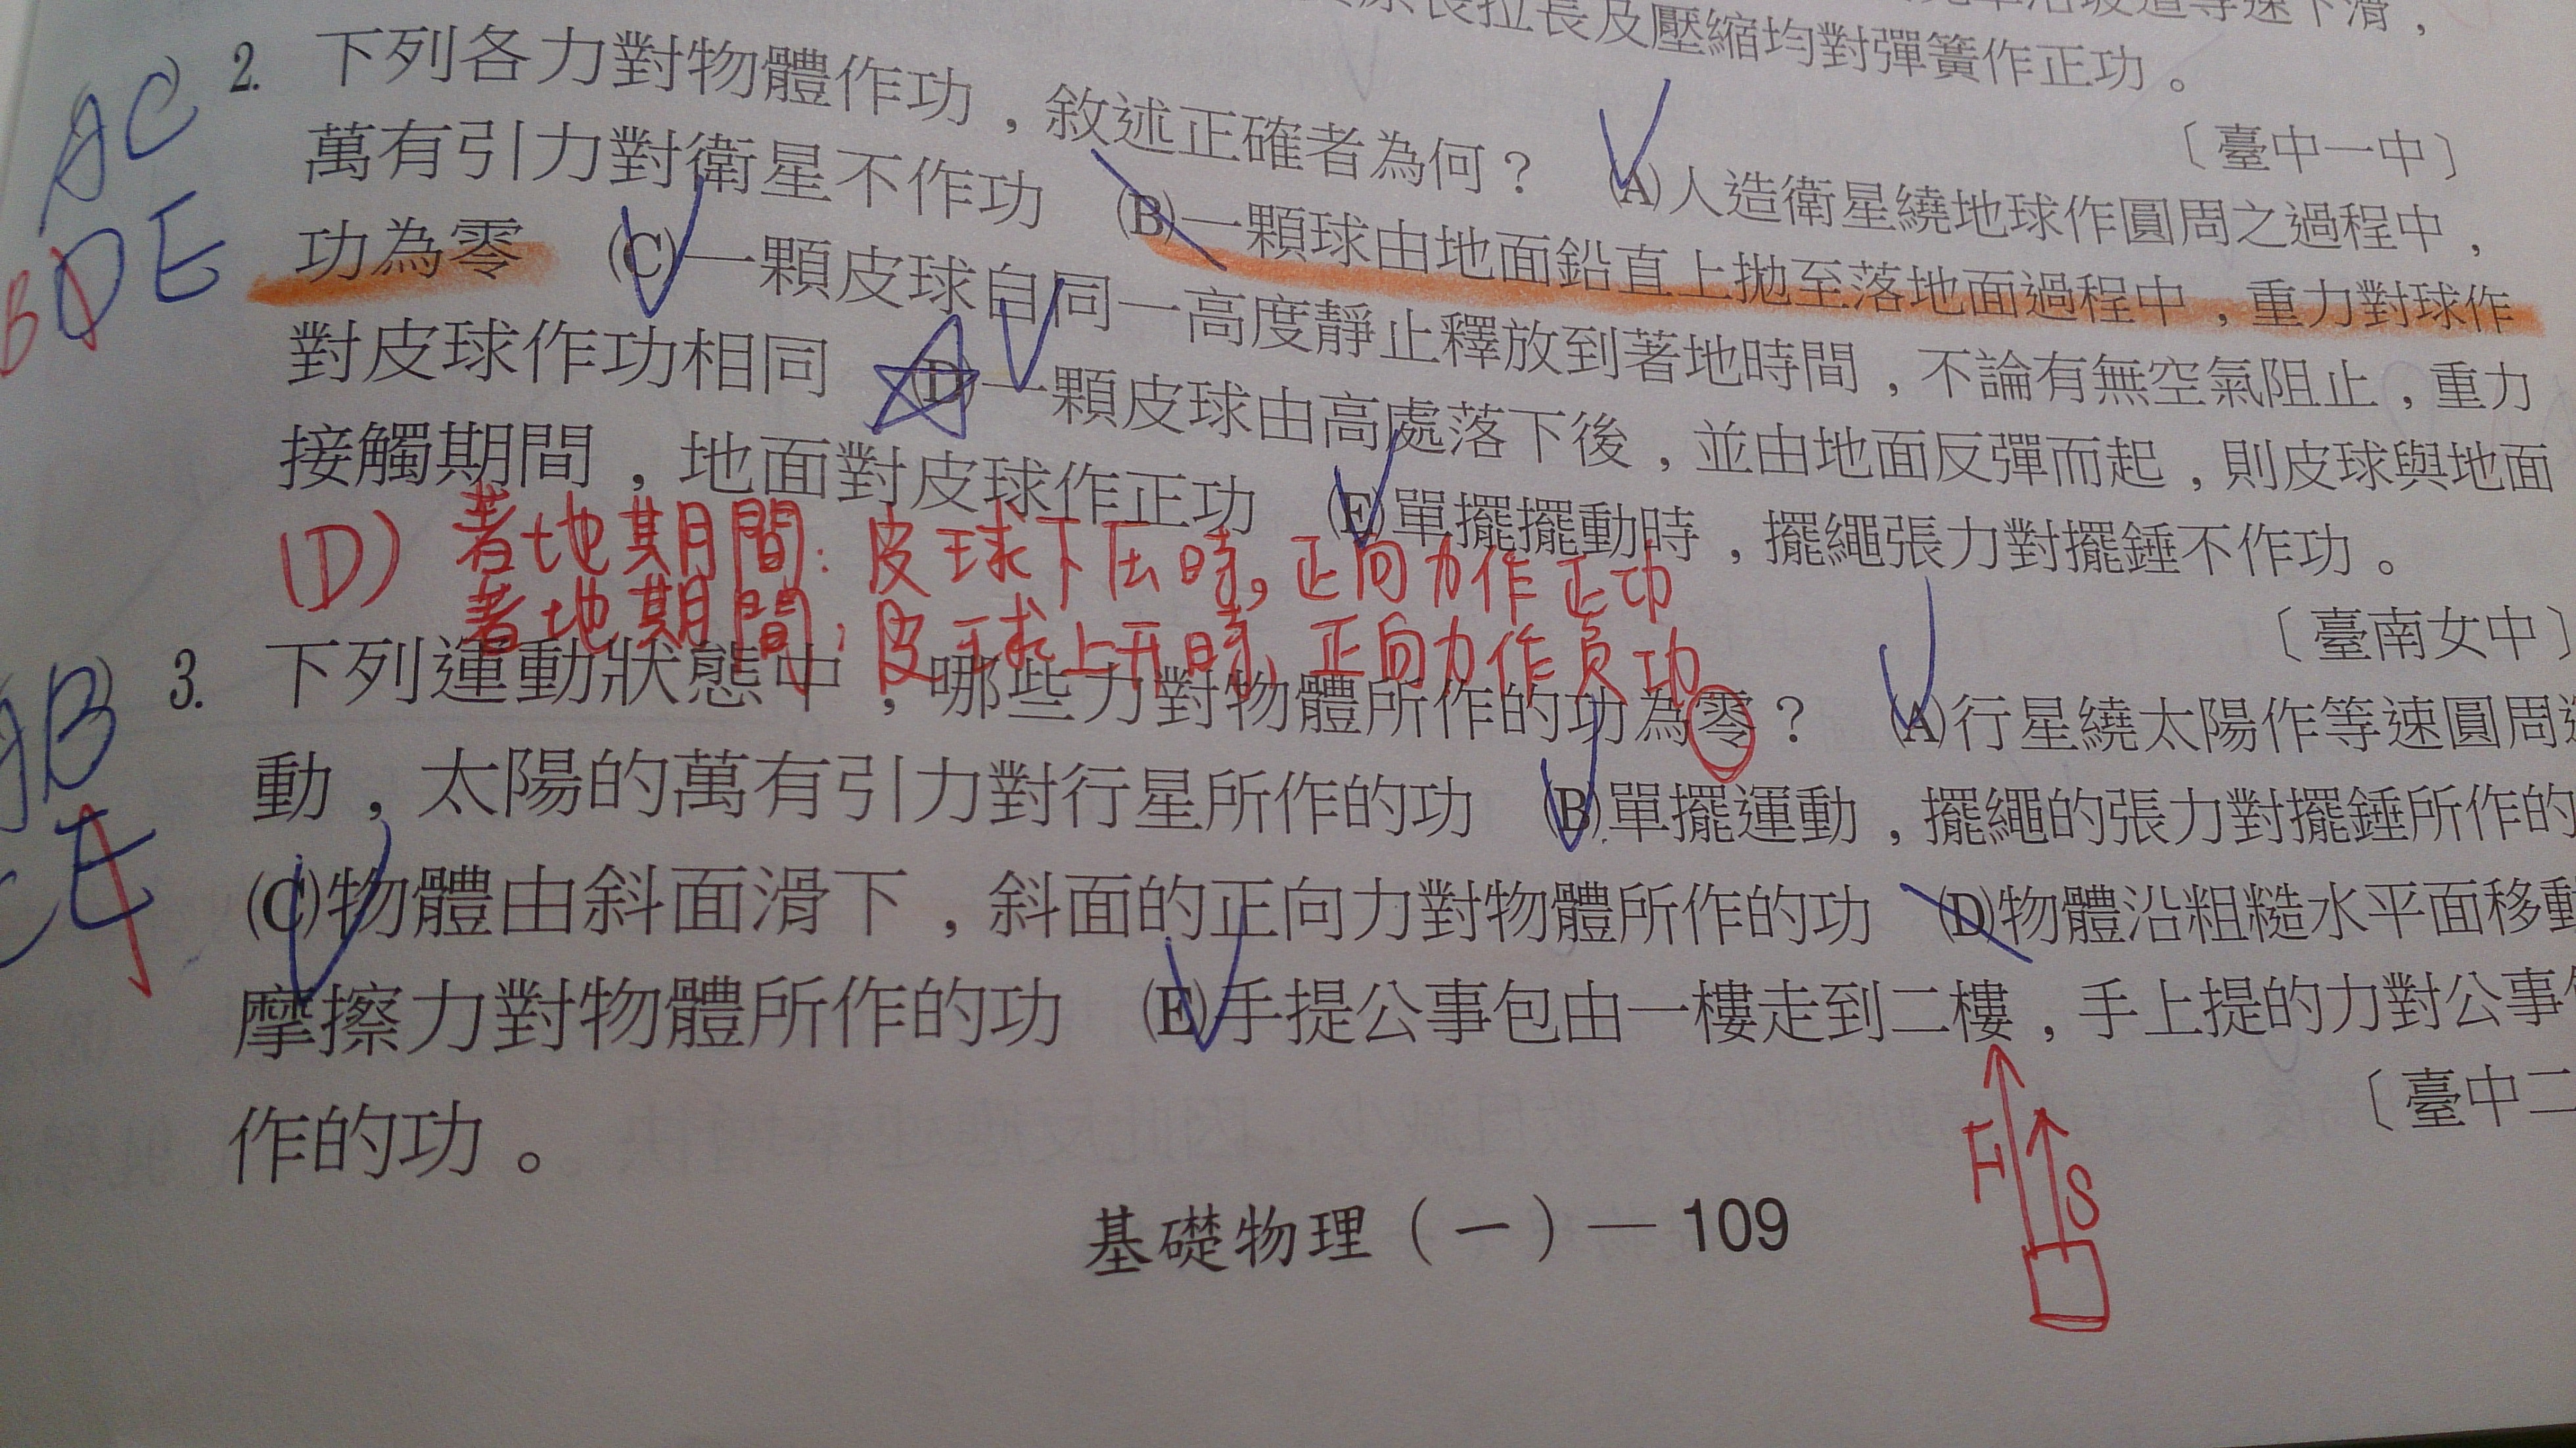 原長拉長及壓縮均對彈簧作正功。
〔臺中一中〕
AC
BDE
2. 下列各力對物體作功，敘述正確者為何？ (A)人造衛星繞地球作圓周之過程中，
萬有引力對衛星不作功 (B)一顆球由地面鉛直上拋至落地面過程中，重力對球作
功為零 (C)一顆皮球自同一高度靜止釋放到著地時間，不論有無空氣阻止，重力
對皮球作功相同 (D)一顆皮球由高處落下後，並由地面反彈而起，則皮球與地面
接觸期間，地面對皮球作正功 (E)單擺擺動時，擺繩張力對擺錘不作功。
〔臺南女中〕
(D) 著地期間：皮球下压時，正向力作正功
著地期間；皮球上升時，正向力作負功
AB
CE
3. 下列運動狀態中，哪些力對物體所作的功為零？ (A)行星繞太陽作等速圓周
動，太陽的萬有引力對行星所作的功 (B)單擺運動，擺繩的張力對擺錘所作的
(C)物體由斜面滑下，斜面的正向力對物體所作的功 (D)物體沿粗糙水平面移動
摩擦力對物體所作的功 (E)手提公事包由一樓走到二樓，手上提的力對公事
作的功。
〔臺中二
F
S
基礎物理（一）— 109